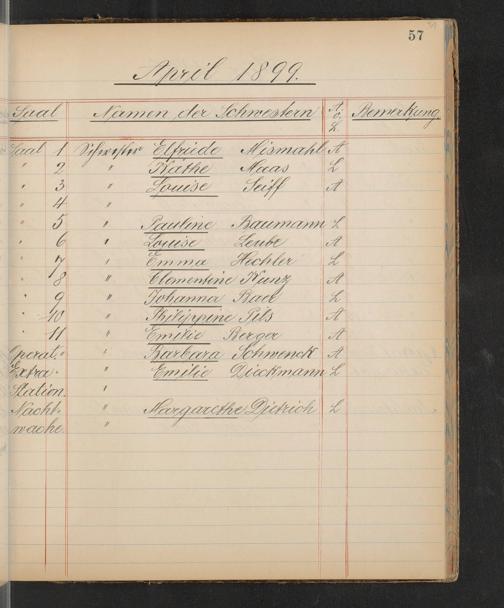 57
April 1899.
Saal Namen der Schwestern A. o. L. Bemerkung.
Saal 1 Schwester Elfriede Mismahl A
" 2 " Käthe Maas L
" 3 " Louise Seiff A
" 4 "
" 5 " Pauline Baumann L
" 6 " Louise Leube A
" 7 " Emma Hechler L
" 8 " Clementine Kunz A
" 9 " Johanna Baer L
" 10 " Philippine Pils A
" 11 " Emilie Berger A
Operat. " Barbara Schwenck A
Extra " Emilie Dieckmann L
Station. "
Nacht- " Margarethe Dietrich L
wache. "